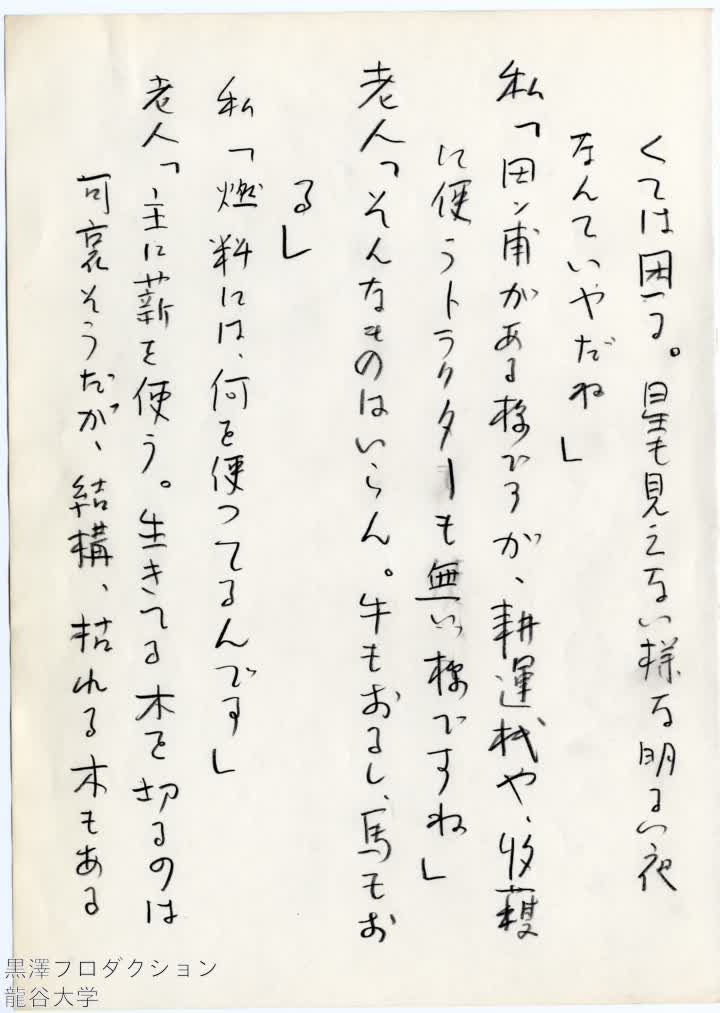 くては困る。星も見えない様な明るい夜
なんていやだね」
私「田ン甫がある様ですが、耕運機や、収穫
に使うトラクターも無い様ですね」
老人「そんなものはいらん。牛もおるし、馬もお
る」
私「燃料には、何を使ってるんです」
老人「主に薪を使う。生きてる木を切るのは
可哀そうだが、結構、枯れる木もある
黒澤プロダクション
龍谷大学